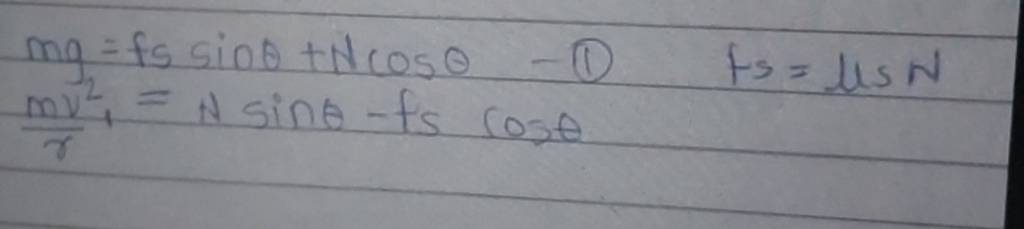 mg = fs sinθ + N cosθ — ① fs = μs N
mv²₁/r = N sinθ - fs cosθ